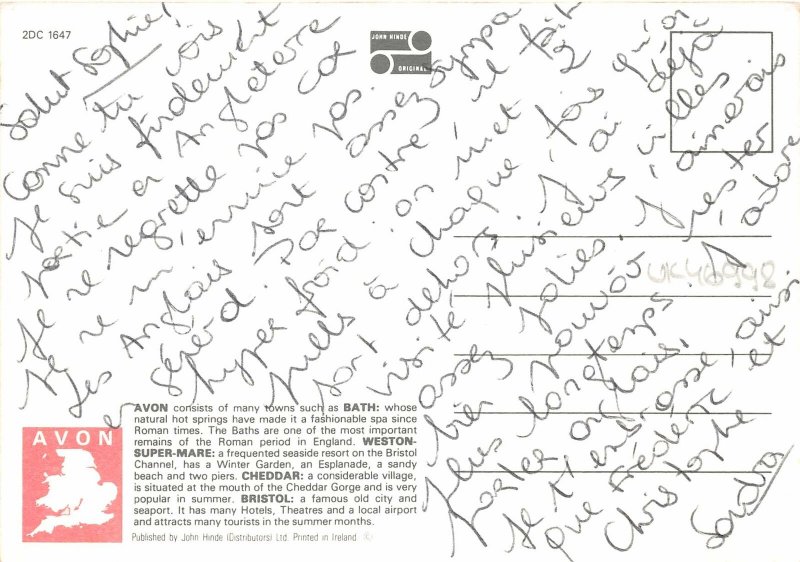 2DC 1647
JOHN HINDE
ORIGINAL
Salut Sophie!
Comme tu vois
je suis finalement
partie en Angleterre
Je ne regrette pas car
je ne m'ennuie pas.
Les Anglais sont assez sympa
ça dépend. Par contre, il fait
hyper froid. on met 2
pulls à chaque fois qu'on
sort dehors. J'ai déjà
visité plusieurs villes
assez jolies. J'aimerais
bien pouvoir rester
plus longtemps. J'adore
parler anglais.
Je t'embrasse, ainsi
que Frédéric et
Christophe
Sandra
UK46992
AVON consists of many towns such as BATH: whose
natural hot springs have made it a fashionable spa since
Roman times. The Baths are one of the most important
remains of the Roman period in England. WESTON-
SUPER-MARE: a frequented seaside resort on the Bristol
Channel, has a Winter Garden, an Esplanade, a sandy
beach and two piers. CHEDDAR: a considerable village,
is situated at the mouth of the Cheddar Gorge and is very
popular in summer. BRISTOL: a famous old city and
seaport. It has many Hotels, Theatres and a local airport
and attracts many tourists in the summer months.
AVON
Published by John Hinde (Distributors) Ltd. Printed in Ireland